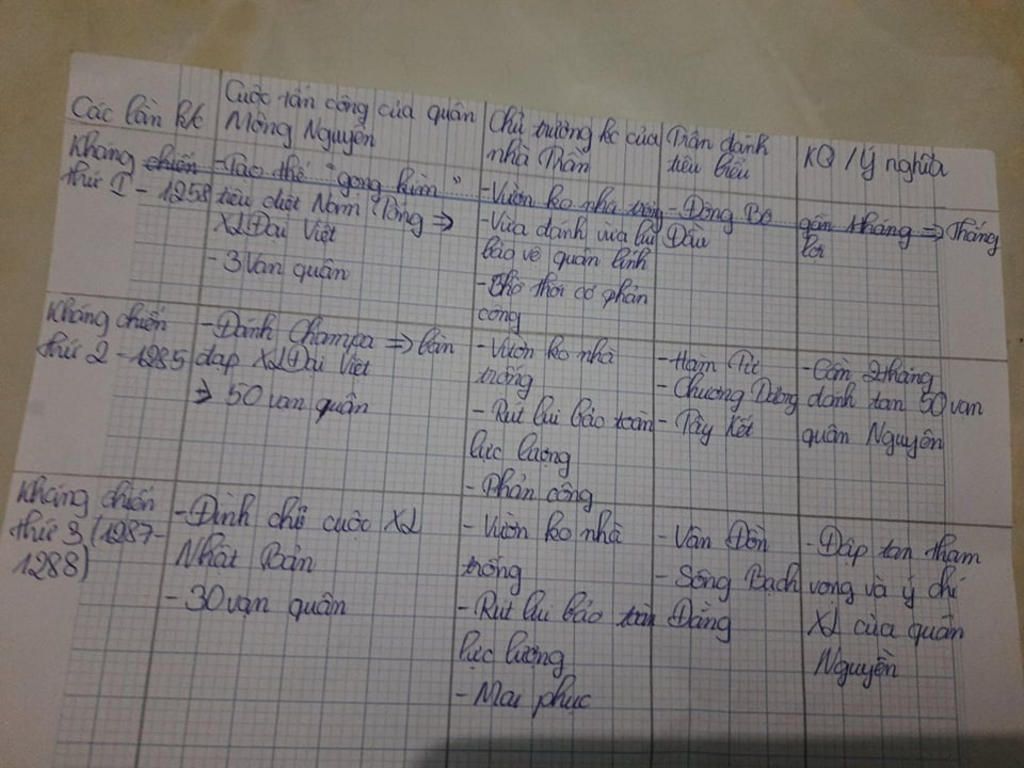 Các lần k/c
Cuộc tấn công của quân
Mông Nguyên
Chủ trương kc của
nhà Trần
Trận đánh
tiêu biểu
KQ / Ý nghĩa
Kháng chiến
thứ I - 1258
- Tạo thế "gọng kìm"
tiêu diệt Nam Tống =>
XL Đại Việt
- 3 vạn quân
- Vườn ko nhà trống
- Vừa đánh vừa lui
bảo vệ quân lính
- Chờ thời cơ phản
công
- Đông Bộ
Đầu
gần tháng => Thắng
lợi
Kháng chiến
thứ 2 - 1285
- Đánh Champa => bàn
đạp XL Đại Việt
=> 50 vạn quân
- Vườn ko nhà
trống
- Rút lui bảo toàn
lực lượng
- Phản công
- Hàm Tử
- Chương Dương
- Tây Kết
- Gần 2 tháng
đánh tan 50 vạn
quân Nguyên
Kháng chiến
thứ 3 (1287-
1288)
- Đình chỉ cuộc XL
Nhật Bản
- 30 vạn quân
- Vườn ko nhà
trống
- Rút lui bảo toàn
lực lượng
- Mai phục
- Vân Đồn
- Sông Bạch
Đằng
- Đập tan tham
vọng và ý chí
XL của quân
Nguyên